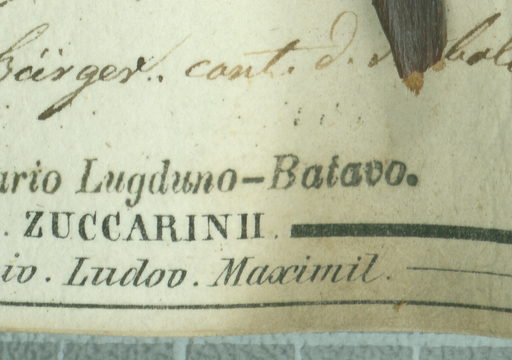 Bürger. cont. d.
ario Lugduno-Batavo.
. ZUCCARINII.
iv. Ludov. Maximil.